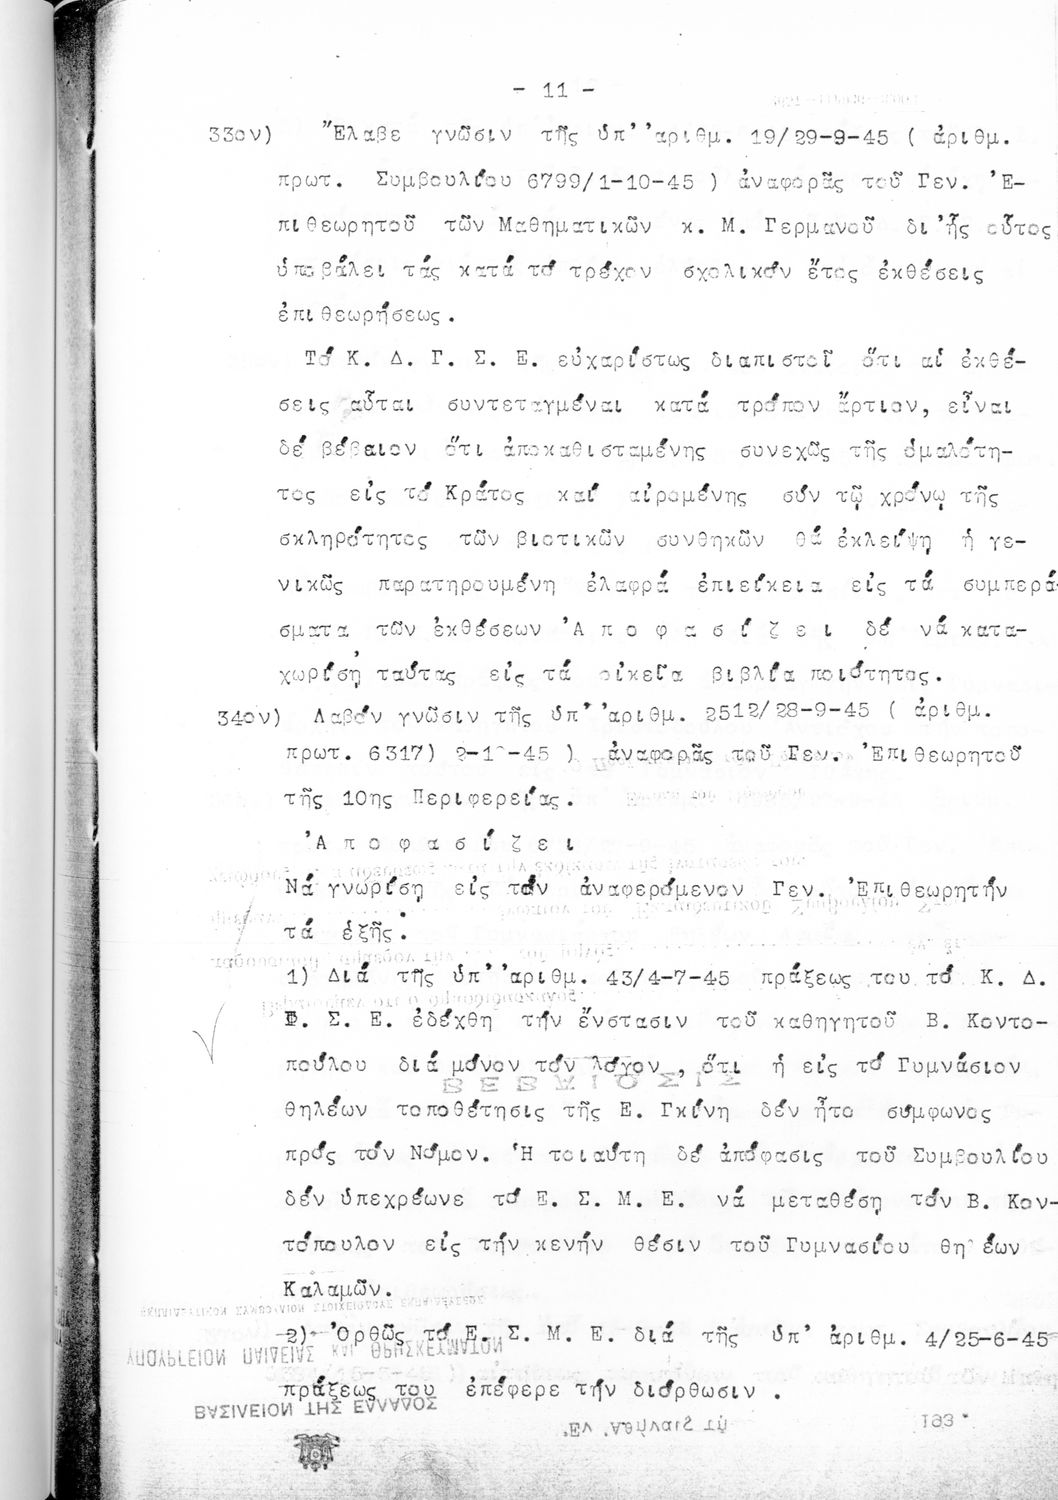 - 11 -
33ον) Ἔλαβε γνῶσιν τῆς ὑπ' ἀριθμ. 19/29-9-45 ( ἀριθμ.
πρωτ. Συμβουλίου 6799/1-10-45 ) ἀναφορᾶς τοῦ Γεν. Ἐ-
πιθεωρητοῦ τῶν Μαθηματικῶν κ. Μ. Γερμανοῦ δι'ἧς οὗτος
ὑποβάλει τάς κατά τό τρέχον σχολικόν ἔτος ἐκθέσεις
ἐπιθεωρήσεως.
Τό Κ. Δ. Γ. Σ. Ε. εὐχαρίστως διαπιστοῖ ὅτι αἱ ἐκθέ-
σεις αὗται συντεταγμέναι κατά τρόπον ἄρτιον, εἶναι
δέ βέβαιον ὅτι ἀποκαθισταμένης συνεχῶς τῆς ὁμαλότη-
τος εἰς τό Κράτος καί αἰρομένης σύν τῷ χρόνῳ τῆς
σκληρότητος τῶν βιοτικῶν συνθηκῶν θά ἐκλείψῃ ἡ γε-
νικῶς παρατηρουμένη ἐλαφρά ἐπιείκεια εἰς τά συμπερά-
σματα τῶν ἐκθέσεων Ἀ π ο φ α σ ί ζ ε ι δέ νά κατα-
χωρίσῃ ταύτας εἰς τά οἰκεῖα βιβλία ποιότητος.
34ον) Λαβόν γνῶσιν τῆς ὑπ' ἀριθμ. 2512/28-9-45 ( ἀριθμ.
πρωτ. 6317) 2-1 -45 ) ἀναφορᾶς τοῦ Γεν. Ἐπιθεωρητοῦ
τῆς 10ης Περιφερείας.
Ἀ π ο φ α σ ί ζ ε ι
Νά γνωρίσῃ εἰς τόν ἀναφερόμενον Γεν. Ἐπιθεωρητήν
τά ἑξῆς:
1) Διά τῆς ὑπ' ἀριθμ. 43/4-7-45 πράξεως του τό Κ. Δ.
Γ. Σ. Ε. ἐδέχθη τήν ἔνστασιν τοῦ καθηγητοῦ Β. Κοντο-
πούλου διά μόνον τόν λόγον , ὅτι ἡ εἰς τό Γυμνάσιον
θηλέων τοποθέτησις τῆς Ε. Γκίνη δέν ἦτο σύμφωνος
πρός τόν Νόμον. Ἡ τοιαύτη δέ ἀπόφασις τοῦ Συμβουλίου
δέν ὑπεχρέωνε τό Ε. Σ. Μ. Ε. νά μεταθέσῃ τόν Β. Κον-
τόπουλον εἰς τήν κενήν θέσιν τοῦ Γυμνασίου θη έων
Καλαμῶν.
2) Ὀρθῶς τό Ε. Σ. Μ. Ε. διά τῆς ὑπ' ἀριθμ. 4/25-6-45
πράξεως του ἐπέφερε τήν διόρθωσιν .
ΥΠΟΥΡΓΕΙΟΝ ΠΑΙΔΕΙΑΣ ΚΑΙ ΘΡΗΣΚΕΥΜΑΤΩΝ
ΒΑΣΙΛΕΙΟΝ ΤΗΣ ΕΛΛΑΔΟΣ